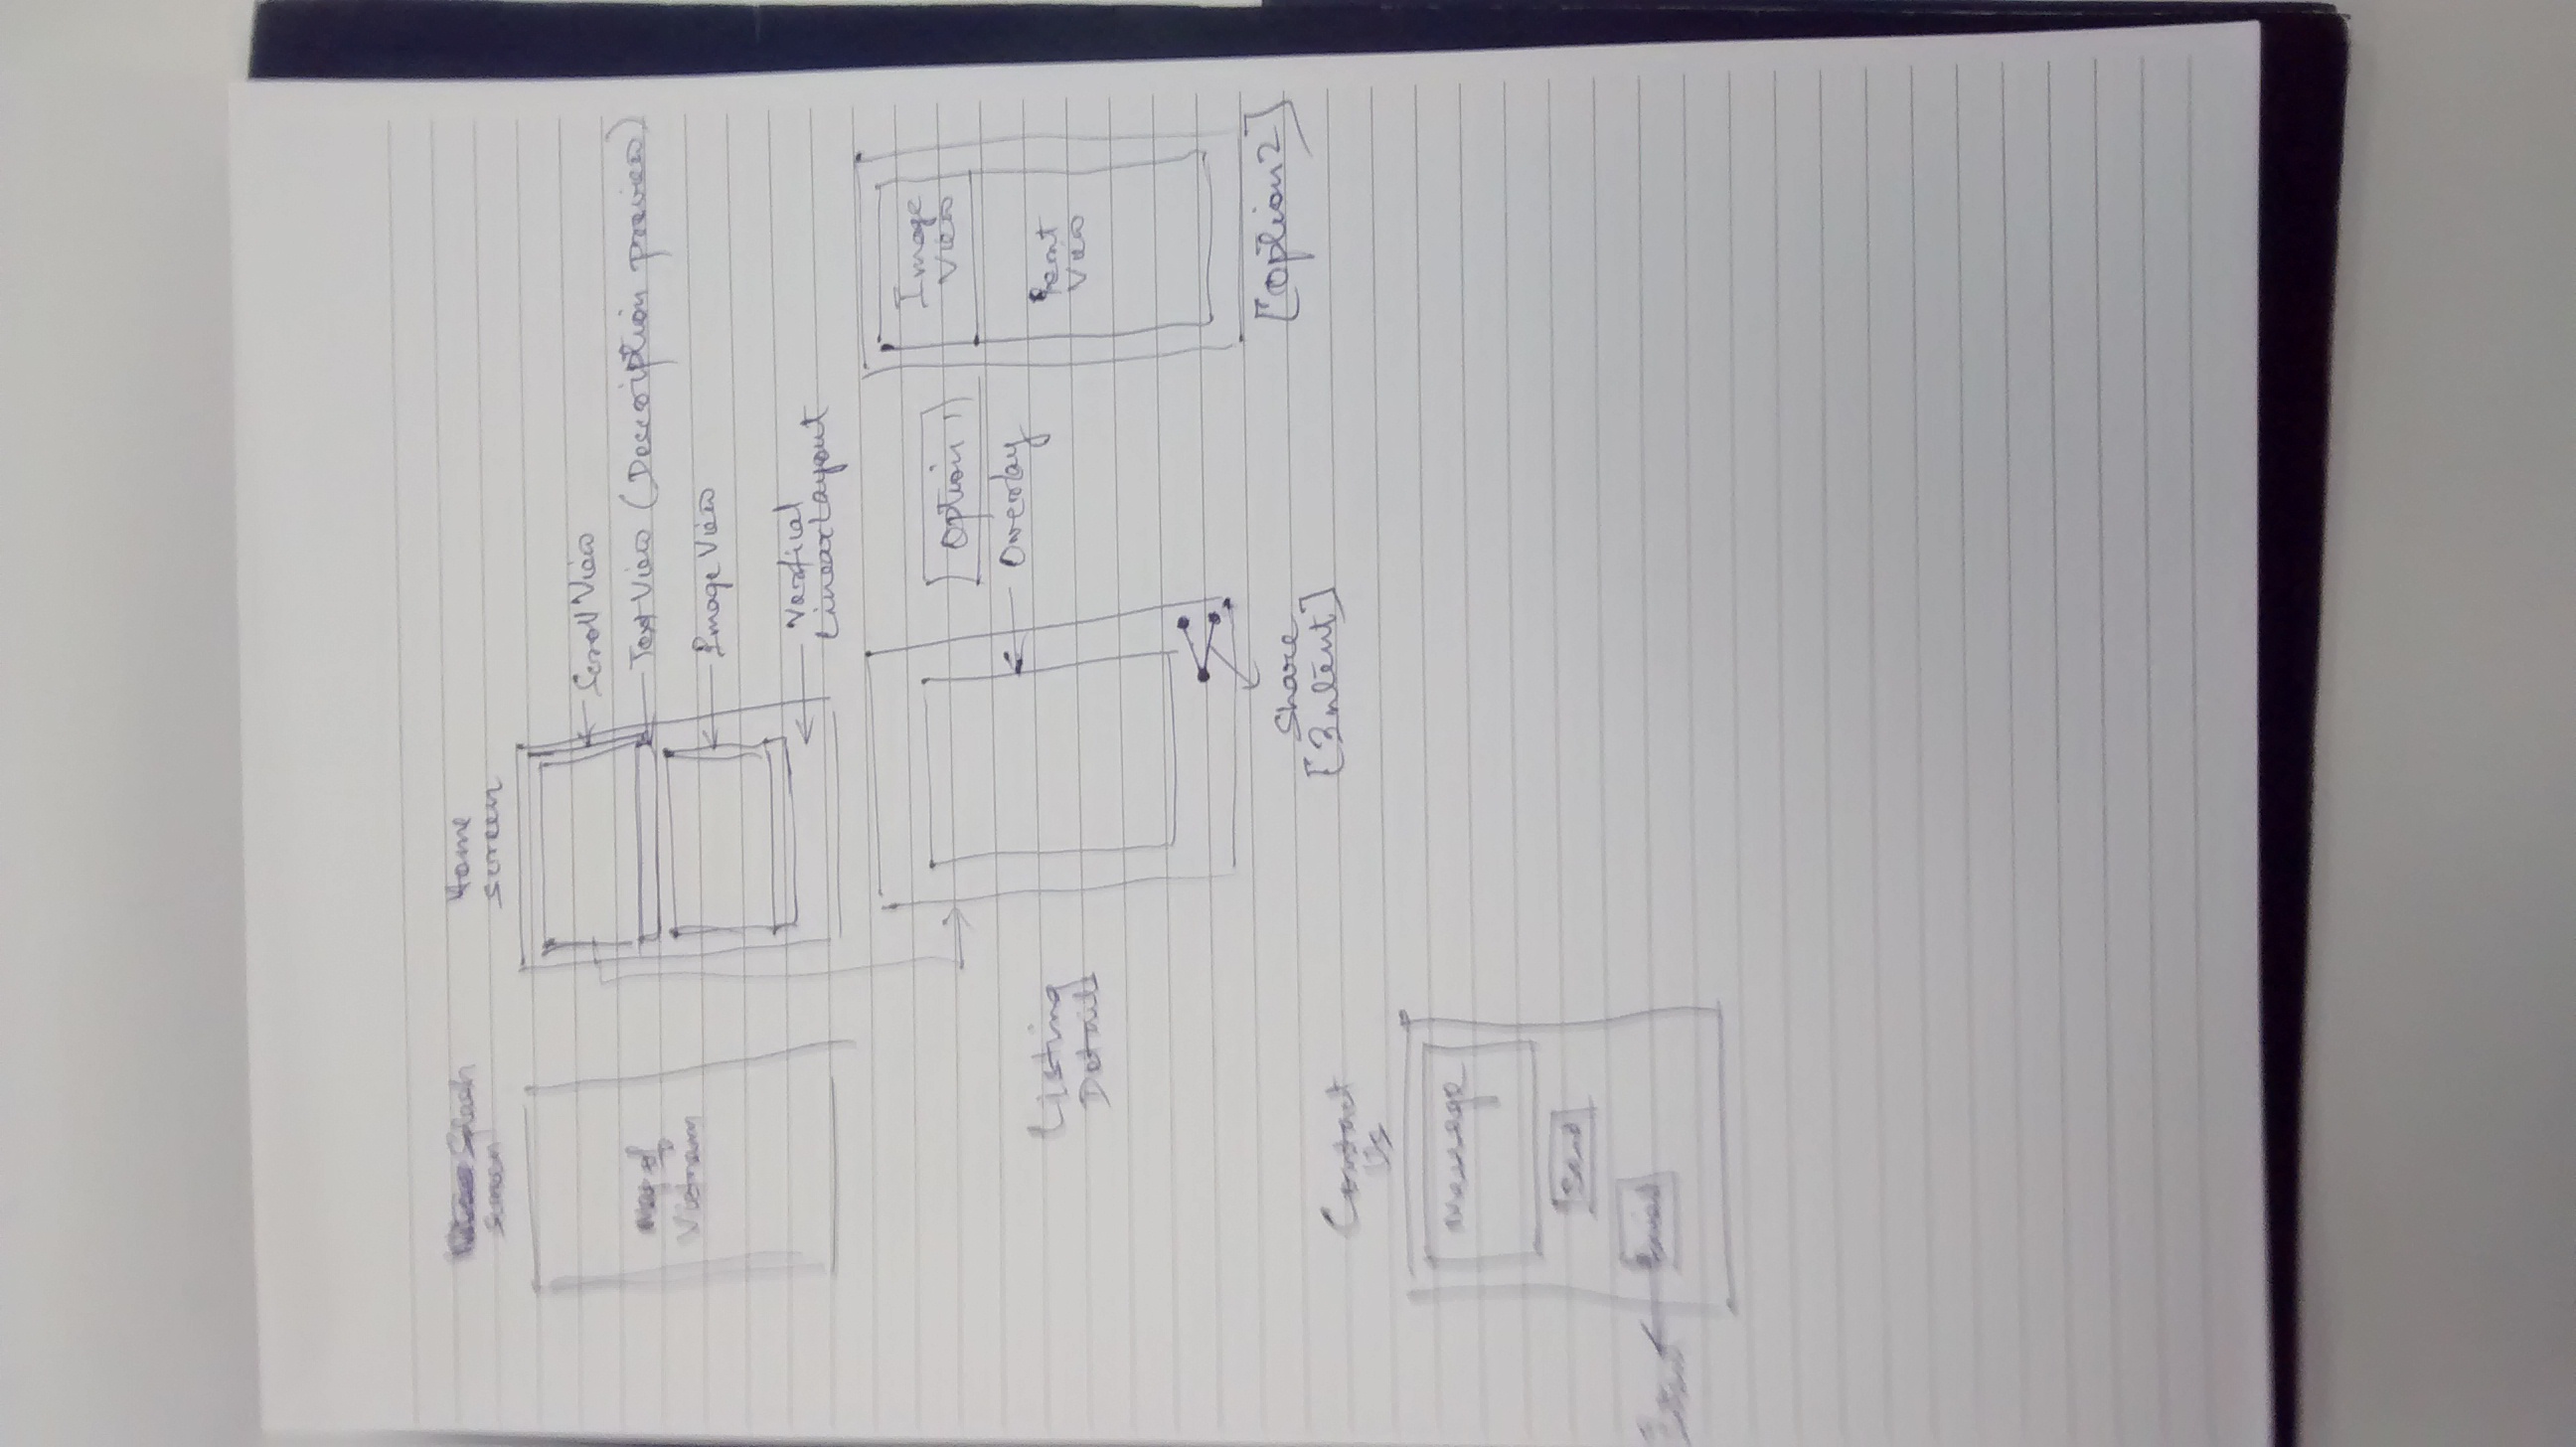 Splash
Screen
Map of
Vietnam
Home
screen
ScrollView
TextView (Description preview)
ImageView
Vertical
Linear Layout
Listing
Details
[Option 1]
Overlay
Share
[Intent]
Image
View
View
[Option2]
Contact
Us
Message
Send
Email